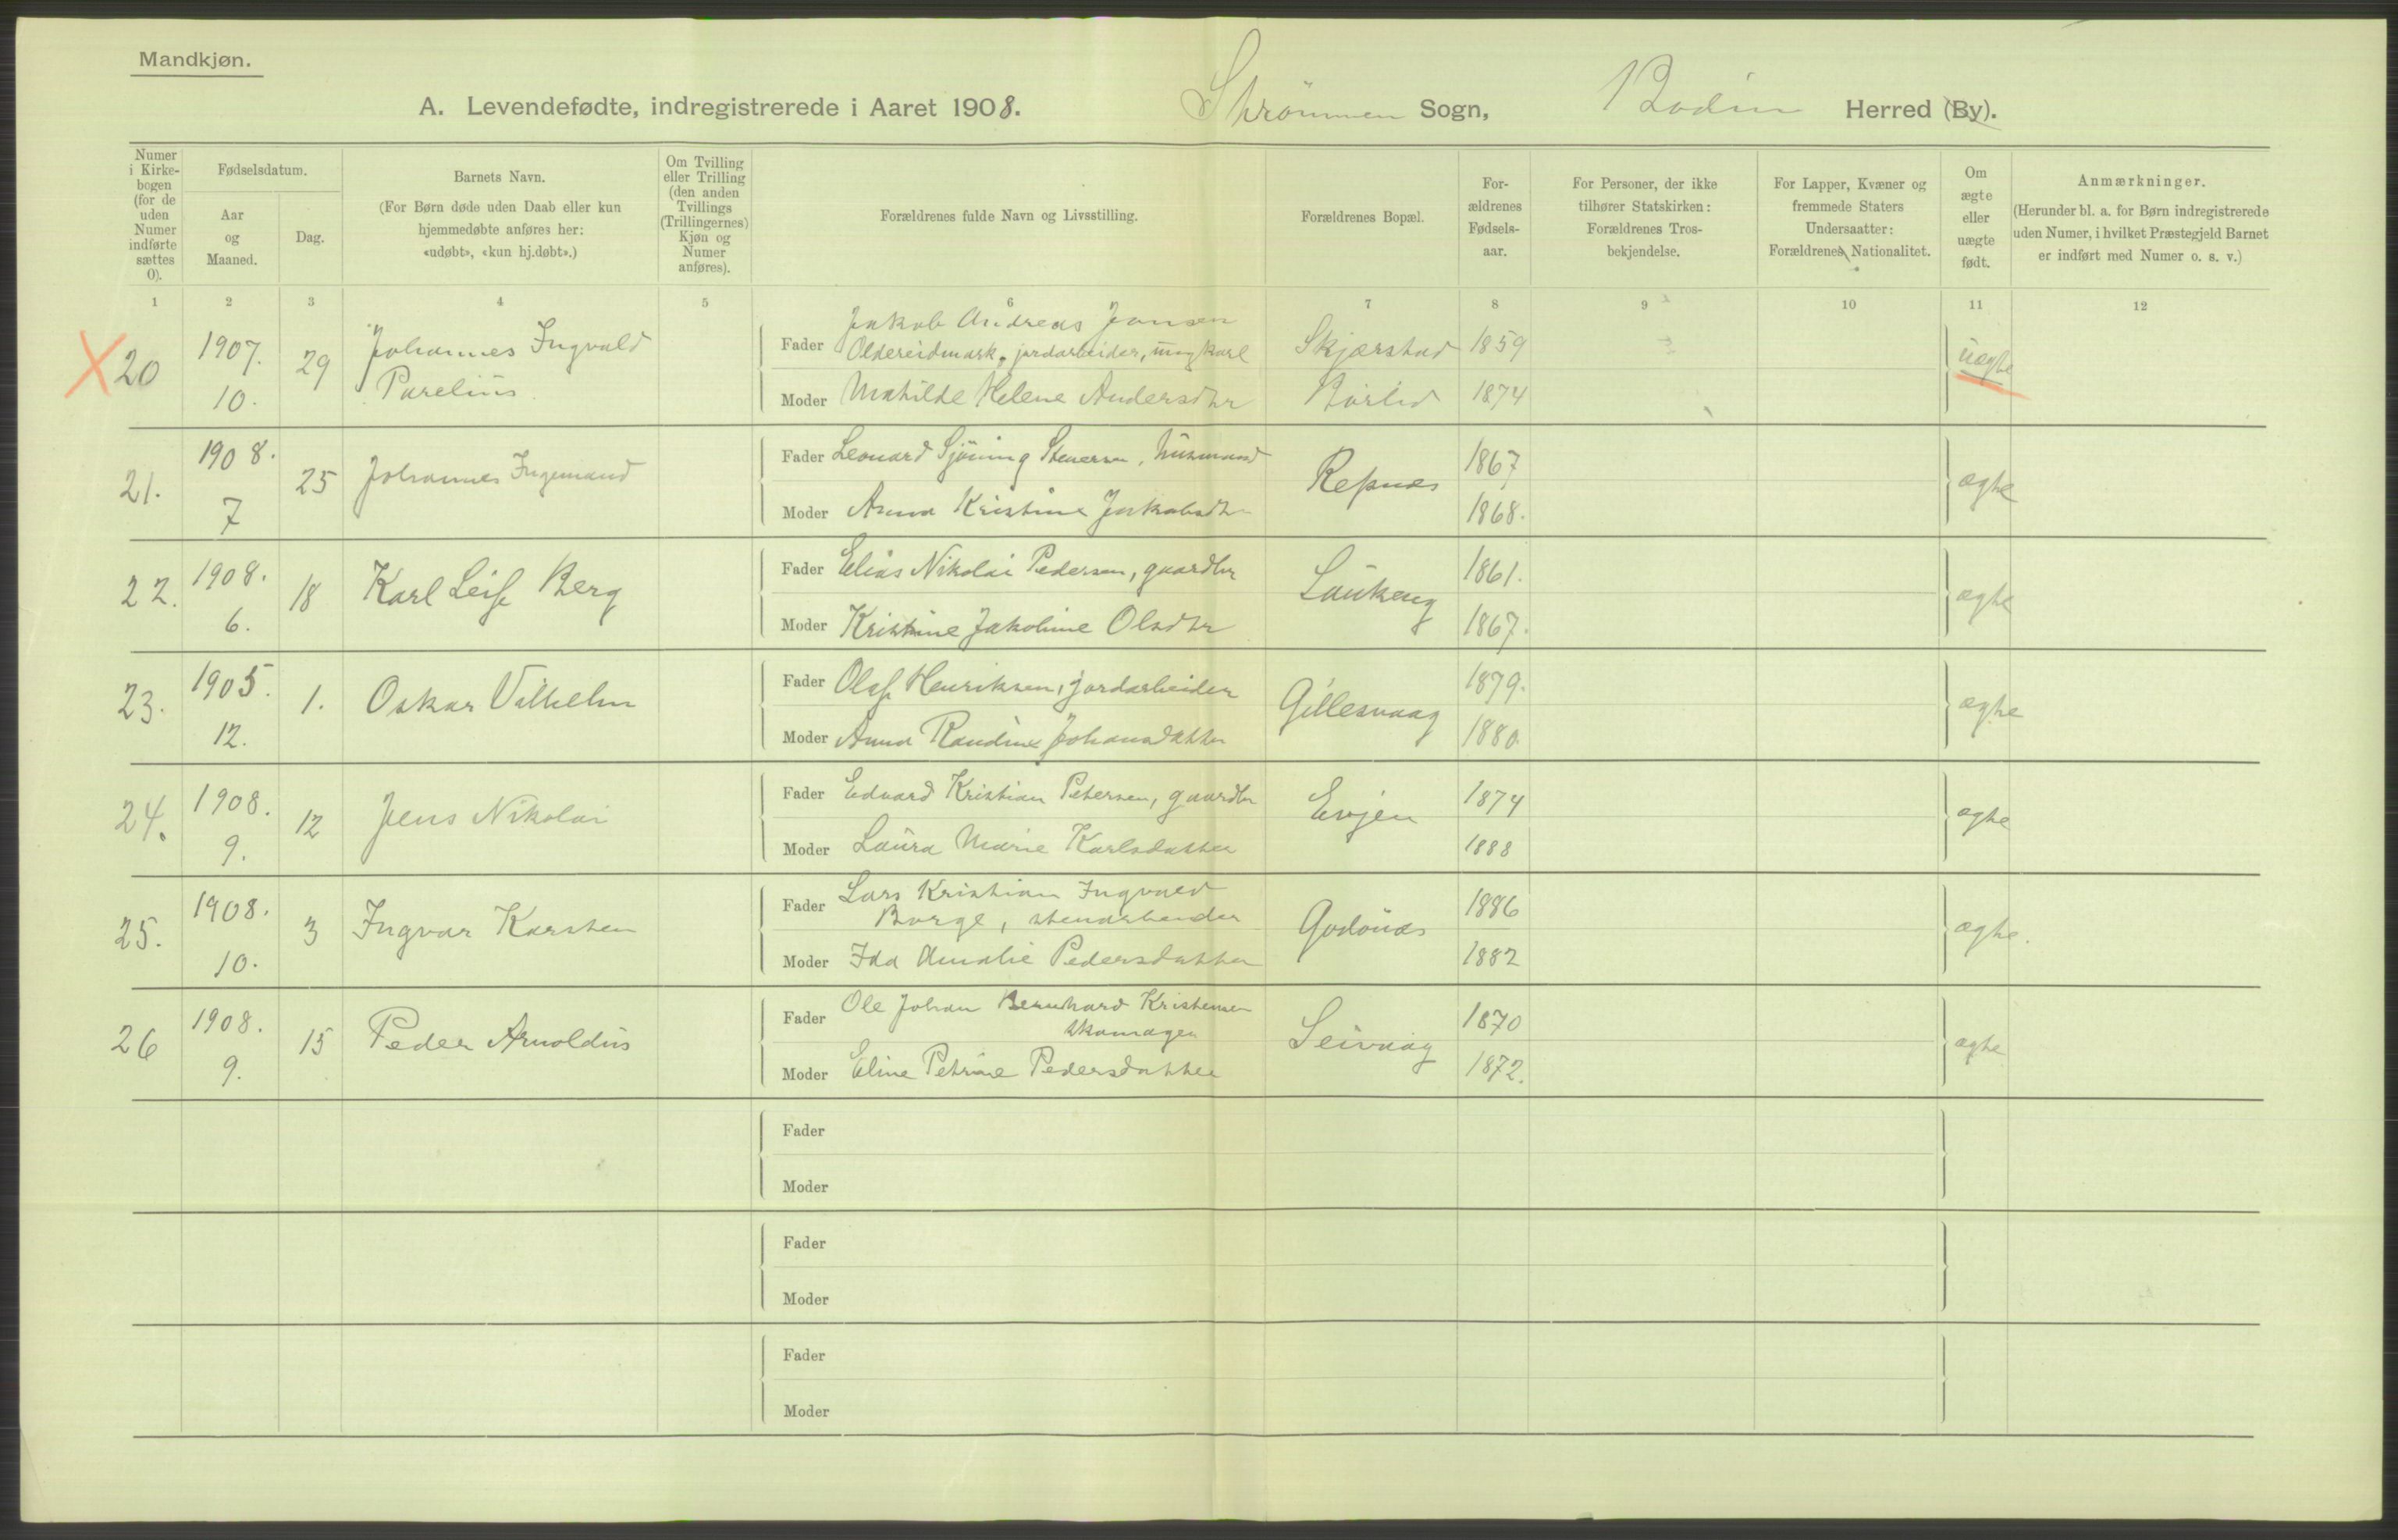 Mandkjøn.
A. Levendefødte, indregistrerede i Aaret 1908. Strömmen Sogn, Bodin Herred (By).
Numer i Kirkebogen (for de uden Numer indførte sættes 0).
Fødselsdatum.
Aar og Maaned.
Dag.
Barnets Navn.
(For Børn døde uden Daab eller kun hjemmedøbte anføres her: «udøbt», «kun hj.døbt».)
Om Tvilling eller Trilling (den anden Tvillings (Trillingernes) Kjøn og Numer anføres).
Forældrenes fulde Navn og Livsstilling.
Forældrenes Bopæl.
For-ældrenes Fødsels-aar.
For Personer, der ikke tilhører Statskirken: Forældrenes Tros-bekjendelse.
For Lapper, Kvæner og fremmede Staters Undersaatter: Forældrenes Nationalitet.
Om ægte eller uægte født.
Anmærkninger.
(Herunder bl. a. for Børn indregistrerede uden Numer, i hvilket Præstegjeld Barnet er indført med Numer o. s. v.)
1 2 3 4 5 6 7 8 9 10 11 12
X 20 1907. 10. 29 Johannes Ingvald Parelius
Fader Jakob Andreas Jansen
Oldereidmark, jordarbeider, ungkarl Skjærstad 1859
Moder Mathilde Helene Andersdtr 1874 uægte
21. 1908. 7 25 Johannes Ingemand
Fader Leonard Sjöning Stenersen, husmand Repnæs 1867
Moder Anna Kristine Jakobsdtr 1868. ægte
22. 1908. 6. 18 Karl Leif Berg
Fader Elias Nikolai Pedersen, gaardbr Laukeng 1861.
Moder Kristine Jakobine Olsdtr 1867. ægte
23. 1905. 12. 1. Oskar Vilhelm
Fader Olaf Henriksen, jordarbeider Gillesvaag 1879.
Moder Anna Randine Johansdatter 1880. ægte
24. 1908. 9. 12 Jens Nikolai
Fader Edvard Kristian Petersen, gaardbr Evjen 1874
Moder Laura Marie Karlsdatter 1888 ægte
25. 1908. 10. 3 Ingvar Karsten
Fader Lars Kristian Ingvald
Borge, stenarbeider Godönæs 1886
Moder Ida Amalie Pedersdatter 1882 ægte.
26 1908. 9. 15 Peder Arnoldus
Fader Ole Johan Bernhard Kristensen
skomager Seivaag 1870
Moder Eline Petrine Pedersdatter 1872. ægte
Fader
Moder
Fader
Moder
Fader
Moder